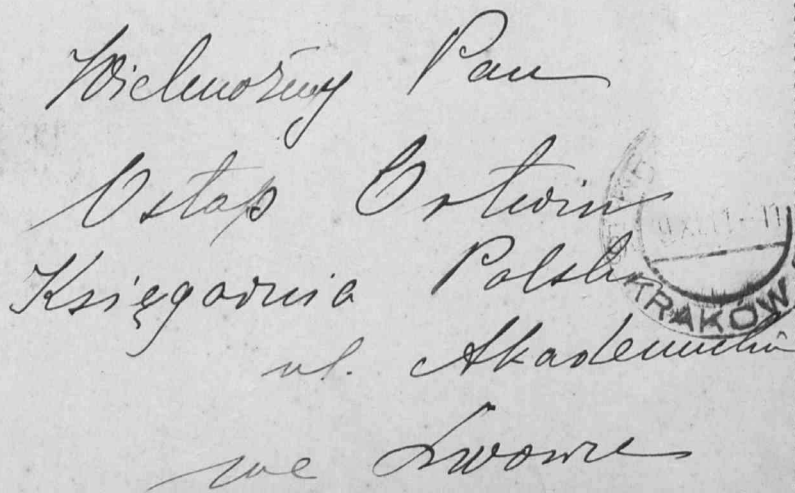 Wielmożny Pan
Ostap Ortwin
Księgarnia Polska
KRAKÓW
ul. Akademicka
we Lwowie